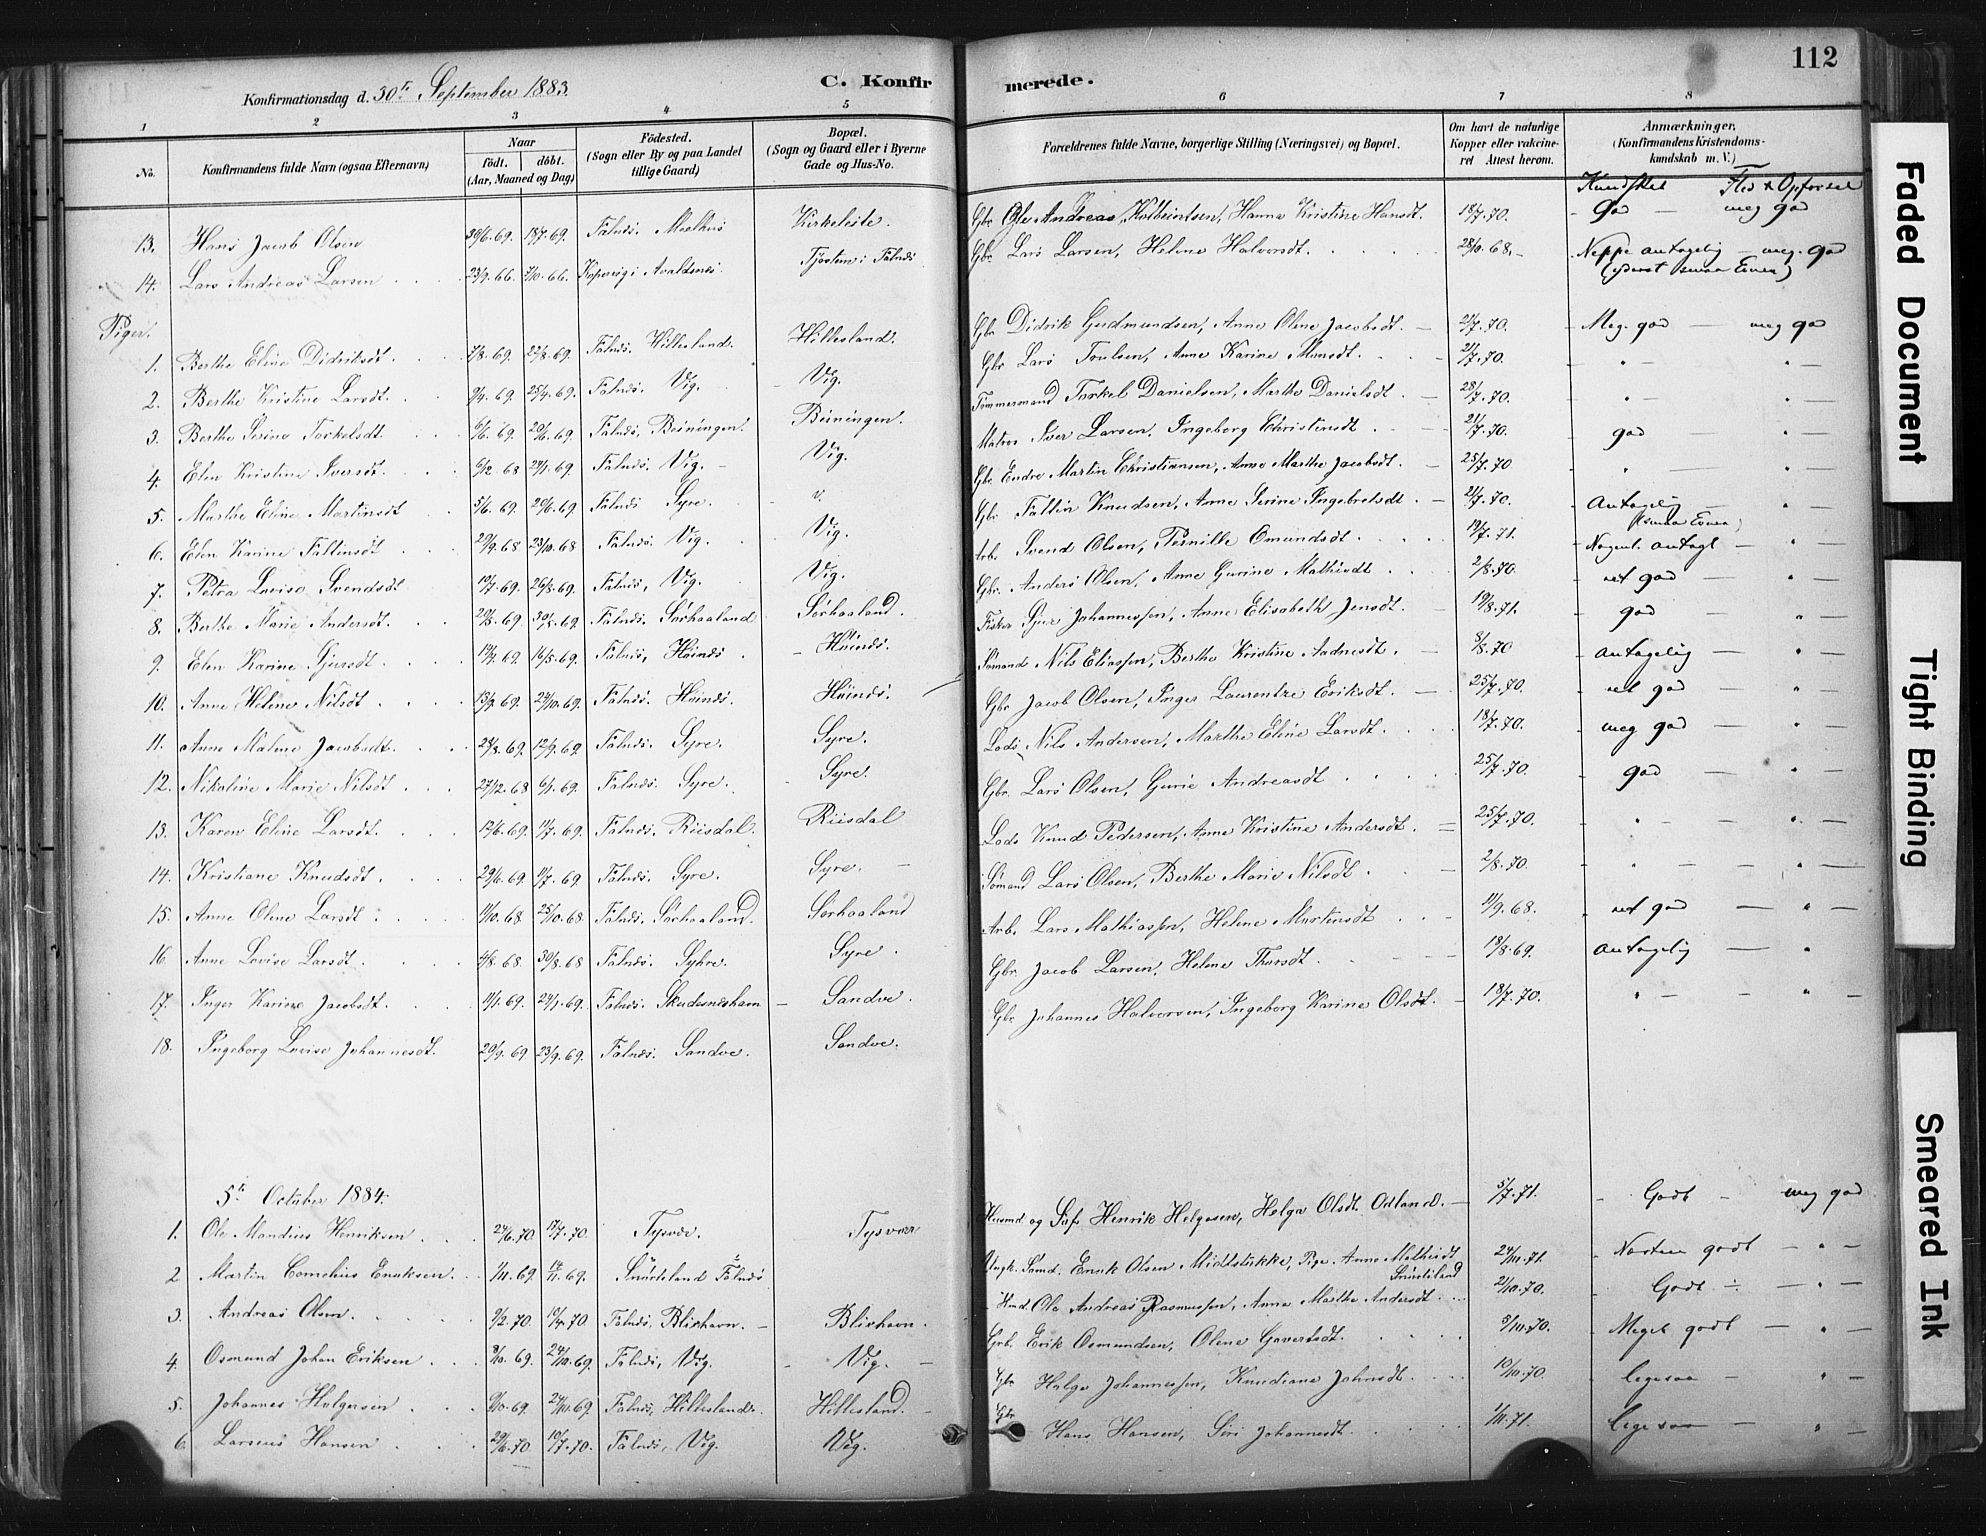 112
Konfirmationsdag d. 30te September 1883.
C. Konfirmerede.
1 2 3 4 5 6 7 8
No.
Konfirmandens fulde Navn (ogsaa Efternavn)
Naar
födt. döbt.
(Aar, Maaned og Dag)
Födested.
(Sogn eller By og paa Landet
tillige Gaard)
Bopæl.
(Sogn og Gaard eller i Byerne
Gade og Hus-No.
Forældrenes fulde Navne, borgerlige Stilling (Næringsvei) og Bopæl.
Om havt de naturlige
Kopper eller vakcine-
ret Attest herom.
Anmærkninger.
(Konfirmandens Kristendoms-
kundskab m. V.)
Kundskab Flid & Opførsel
13. Hans Jacob Olsen 30/6.69. 18/7.69. Falnæs. Mælhus Kirkeleite. Gbr. Ole Andreas Kolbeintsen, Hanna Kristine Hansdt. 18/7.70. - God - meg god
14. Lars Andreas Larsen 23/9.66. 7/10.66. Kopervig i Avaldsnes. Tjøsteim i Falnæs Gbr. Lars Larsen, Helene Halvorsdt. 28/10.68. - Neppe antagelig - meg. god
(yderst smaa Evner)
Piger.
1. Berthe Eline Didriksdt. 7/8.69. 22/8.69. Falnæs. Hillesland. Hillesland. Gbr. Didrik Gudmundsen, Anne Oline Jacobsdt. 21/7.70. - Meg. god - meg god
2. Berthe Kristine Larsdt. 9/4.69. 25/4.69. Falnæs. Vig. Vig. Gbr. Lars Toulsen, Anne Karine Monsdt. 21/7.70. - " - " -
3. Berthe Serine Torkelsdt. 6/6.69. 20/6.69. Falnæs, Beiningen. Beiningen. Tømmermand Torkel Danielsen, Marthe Danielsdt. 28/7.70. - " - " -
4. Elen Kristine Iversdt. 6/12.68 24/1.69. Falnæs. Vig. Vig. Matros Iver Larsen, Ingeborg Christensdt. 21/7.70. god - "
5. Marthe Eline Martinsdt 5/6.69. 20/6.69. Falnæs Syre. Gbr. Endre Martin Christiansen, Anne Marthe Jacobsdt. 25/7.70 " - "
6. Elen Karine Faltinsdt 29/9.68 23/10.68 Falnæs. Vig. Vig. Gbr. Faltin Knudsen, Anne Serine Ingebretsdt. 21/7.70. - Antagelig - " -
(smaa Evner)
7. Petra Lovise Svendsdt 19/7.69. 26/8.69. Falnæs, Vig. Vig. Arb. Svend Olsen, Pernille Omundsdt. 19/7.71. - Nogenl. antagl - " -
8. Berthe Marie Andersdt. 20/3.69. 30/5.69. Falnæs. Sørhaaland Sørhaaland. Gbr. Anders Olsen, Anne Gurine Mathiasdt 2/8.70. - ret god - " -
9. Elen Karine Gjersdt. 19/4.69. 16/5.69. Falnæs, Høinæs. Høinæs. Fisker Gjer Johannessen, Anne Elisabeth Jensdt. 19/8.71. - god - " -
10. Anne Helene Nilsdt 13/9.69. 24/10.69. Falnæs. Høinæs. Høinæs. Sømand Nils Eliassen, Berthe Kristine Aadnesdt. 8/8.70 - antagelig - " -
11. Anne Malene Jacobsdt. 24/8.69. 12/9.69. Falnæs. Syre. Syre. Gbr. Jacob Olsen, Inger Laurentze Eriksdt. 25/7.70. - ret god - " -
12. Nikoline Marie Nilsdt 27/12.68 6/1.69. Falnæs. Syre. Syre. Lods Nils Andersen, Marthe Eline Larsdt. 18/7.70. meg god - " -
13. Karen Eline Larsdt. 12/6.69. 11/7.69. Falnæs. Riisdal. Riisdal Gbr. Lars Olsen, Gurie Andreasdt 25/7.70. - god - " -
14. Kristiane Knudsdt. 29/6.69. 11/7.69. Falnæs. Syre. Syre. Lods Knud Pedersen, Anne Kristine Andersdt. 25/7.70. - " - " -
15. Anne Oline Larsdt. 11/10.68 25/10.68 Falnæs. Sørhaaland. Sørhaaland Sømand Lars Olsen, Berthe Marie Nilsdt. 2/8.70. - " - " -
16. Anne Lovise Larsdt. 4/8.68. 30/8.68 Falnæs. Syhre. Syre. Arb. Lars Mathiassen, Helene Martinsdt 11/9.68. ret god - " -
17. Inger Karine Jacobsdt. 11/1.69. 24/1.69. Falnæs. Skudesneshavn Sandve. Gbr. Jacob Larsen, Helene Thorsdt. 18/8.69. antagelig - "
18. Ingeborg Lovise Johannesdt. 20/9.69 23/9.69. Falnæs. Sandve. Sandve. Gbr. Johannes Halvorsen, Ingeborg Karine Olsdt. 18/7.70. " - " -
5te October 1884.
1. Ole Mandius Henriksen 24/6.70 17/7.70. Tysvær. Tysvær Husmd. og Henrik Helgesen, Helga Olsdt. Odland. 5/7.71. - Godt - meg god
2 Martin Cornelius Enoksen. 1/11.69. 14/11.69. Snurteland Falnæs Ungk. Sømd. Enok Olsen Midtstøkke, Pige Anne Mathisdt 24/10.71. - Næsten godt - " -
Snurteland
3. Andreas Olsen. 9/2.70. 10/4.70. Falnæs. Blixhavn. Blixhavn. Ole Andreas Rasmussen, Anne Marthe Andersdt. 2/10.70. - Godt - " -
4. Osmund Johan Eriksen 8/10.69. 24/10.69. Falnæs, Vig. Vig. Grb. Erik Osmundsen, Olene Govertsdt. 8/10.70. - Meget godt - " -
5. Johannes Helgesen 9/10.69. 24/10.69. Falnæs, Hillesland. Hillesland. Gbr Helge Johannessen, Knudiane Johnsdt. 10/10.70. - ligesaa - " -
6. Larsius Hansen 29/6.70 10/7.70. Falnæs, Vig. Vig. Gbr Hans Hansen, Siri Johannesdt. 1/11.71. - ligesaa - "
Faded Document
Tight Binding
Smeared Ink